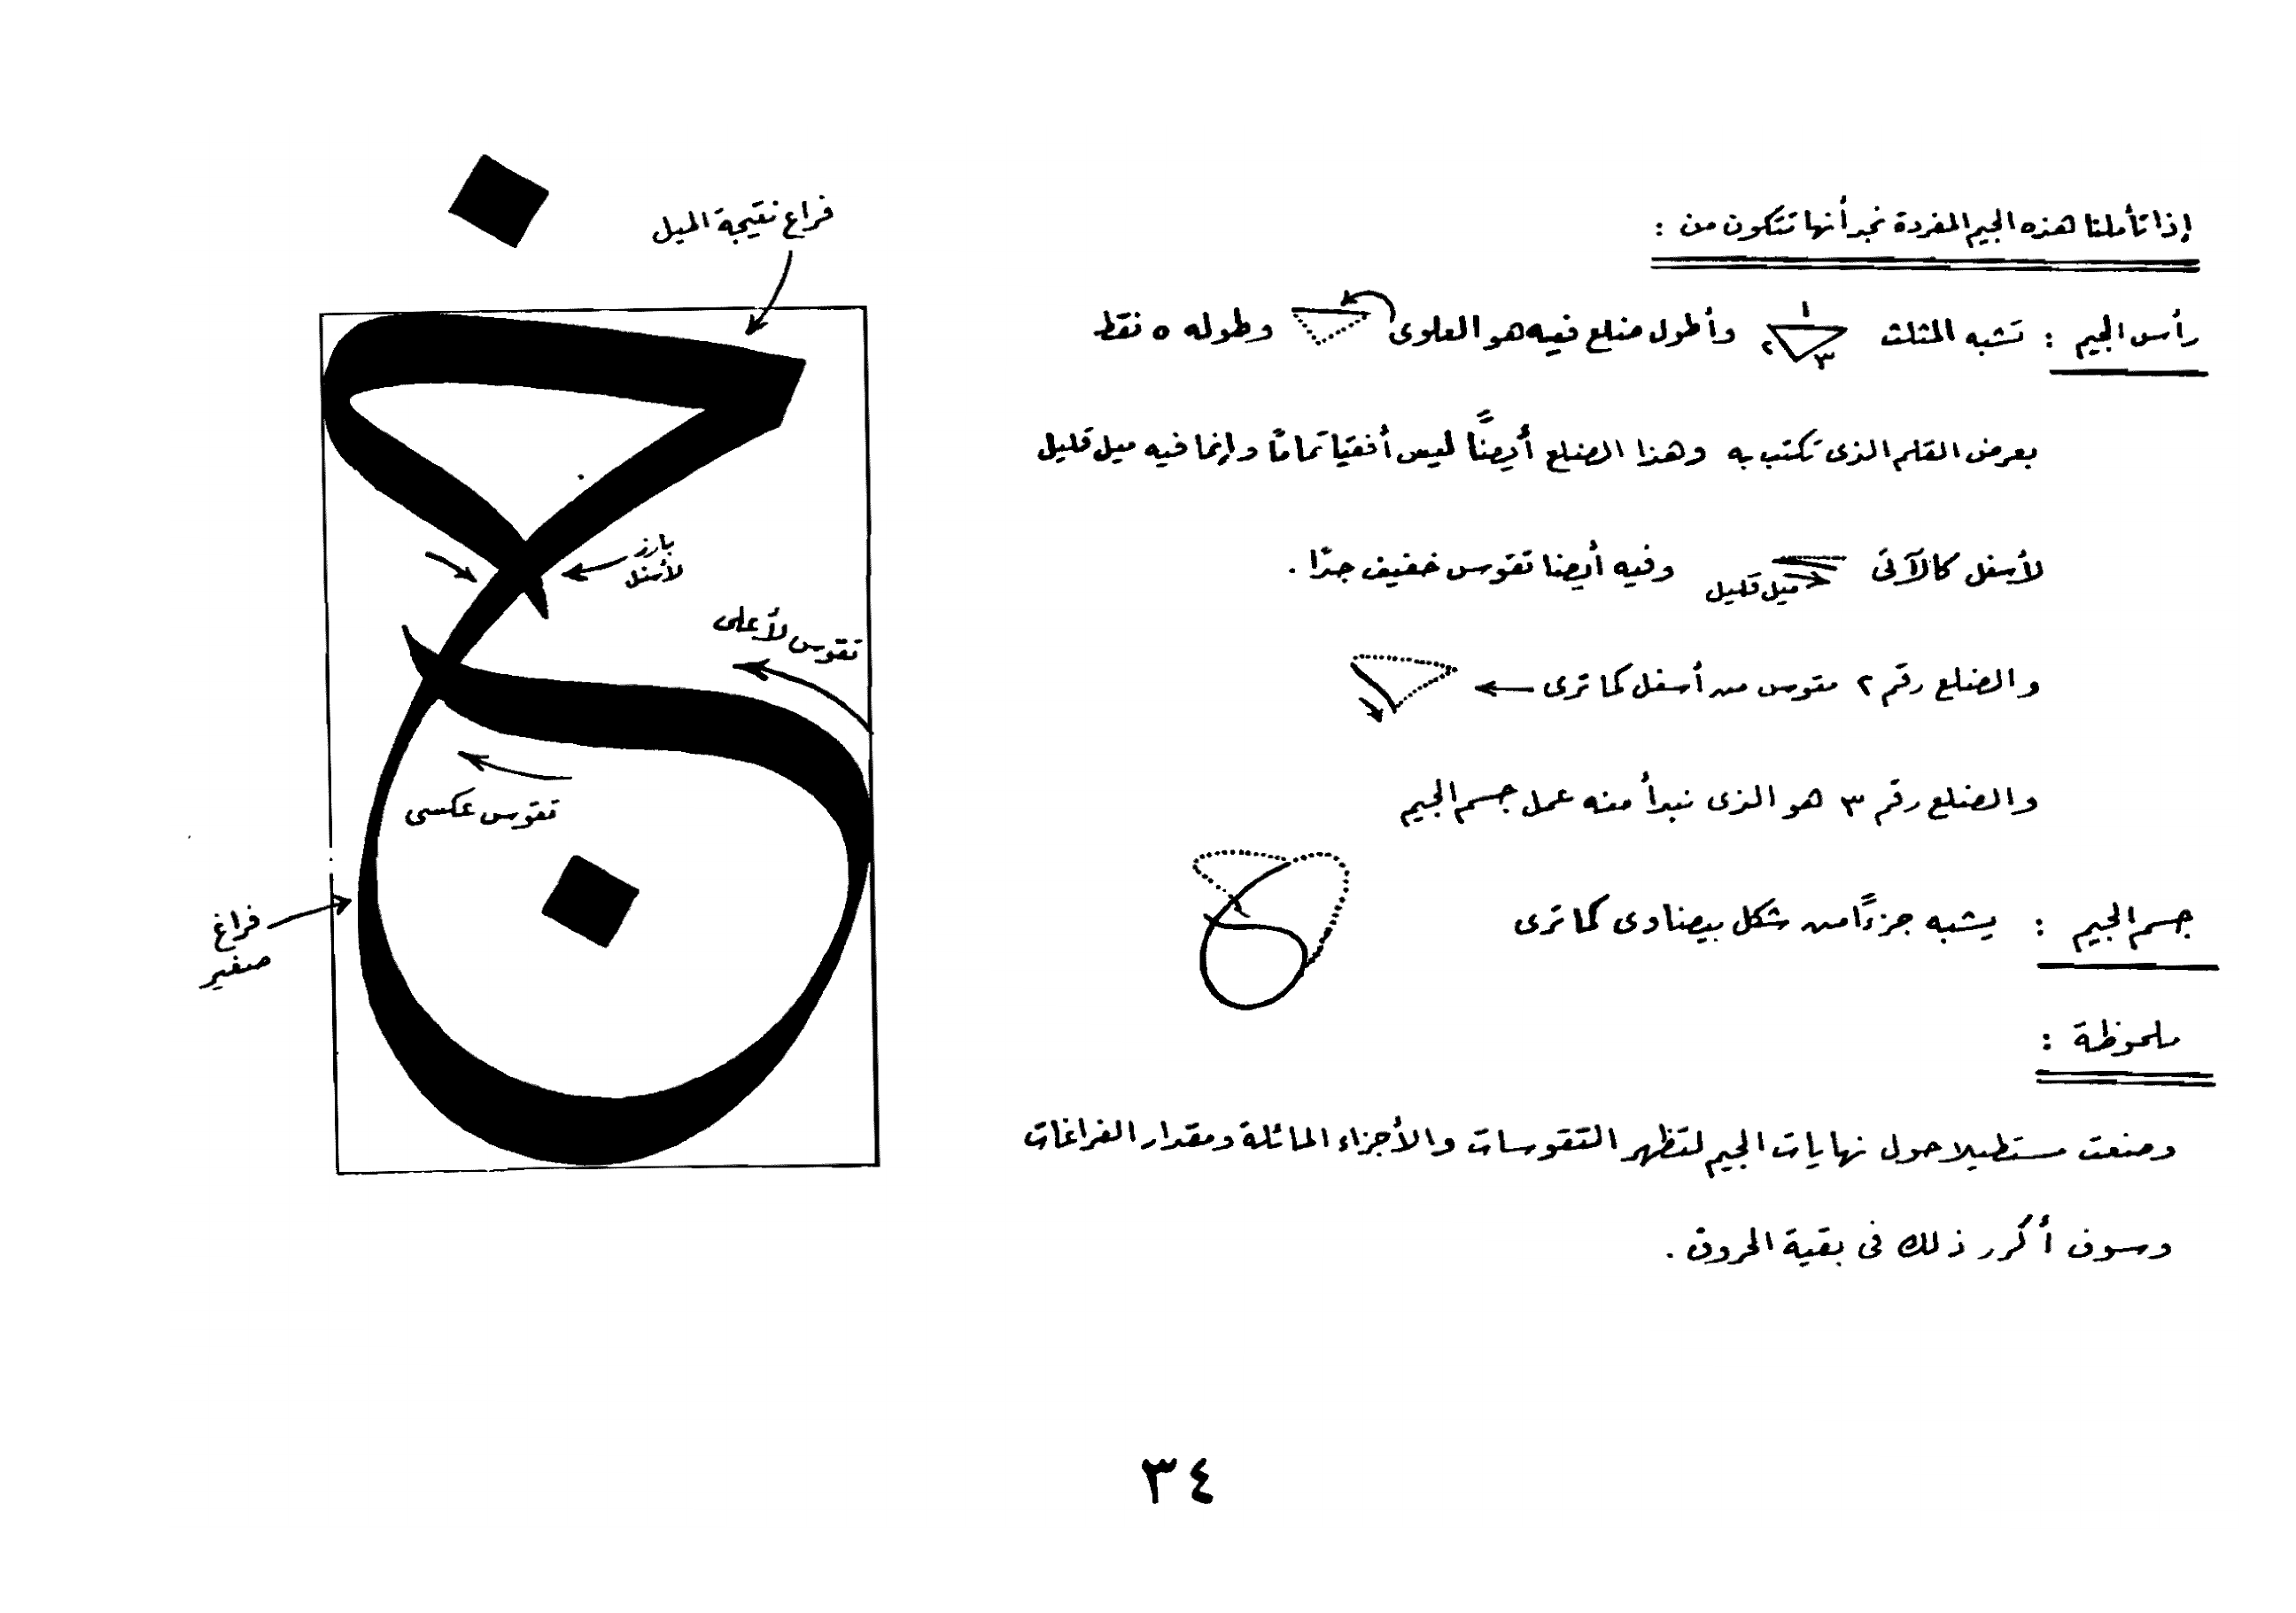 إذا تأملنا هذه الجيم المفردة نجد أنها تتكون من :
رأس الجيم : تشبه المثلث ١ ٢ ٣ وأطول ضلع فيه هو العلوى وطوله ٥ نقط
بعرض القلم الذى تكتب به وهذا الضلع أيضًا ليس أفقيا تمامًا وإنما فيه ميل قليل
لأسفل كالآتى ميل قليل وفيه أيضا تقوس خفيف جدًا .
والضلع رقم ٢ مقوس من أسفل كما ترى
والضلع رقم ٣ هو الذى نبدأ منه عمل جسم الجيم
جسم الجيم : يشبه جزءًا من شكل بيضاوى كما ترى
ملحوظة :
وضعت مستطيلا حول نهايات الجيم لتظهر التقوسات والأجزاء المائلة ومقدار الفراغات
وسوف أكرر ذلك فى بقية الحروف .
فراغ نتيجة الميل
ج
بارز
لأسفل
تقوس لأعلى
تقوس عكسى
فراغ
صغير
٣٤